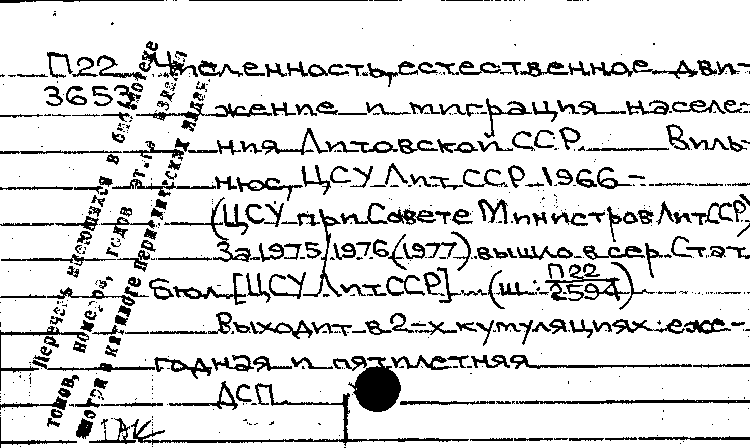 П22 Численность, естественное дви-
3653 жение и миграция населе-
ния Литовской ССР. Виль-
нюс, ЦСУ Лит. ССР, 1966 –
(ЦСУ при Совете Министров Лит ССР)
За 1975, 1976 (1977) вышло в сер. Стат.
бюл. [ЦСУ Лит ССР] (ш: П22/2594)
Выходит в 2-х кумуляциях: еже-
годная и пятилетняя
ДСП
Перечень имеющихся в библиотеке
томов, номеров, годов эт.го издания
смотри в каталоге периодических издан.